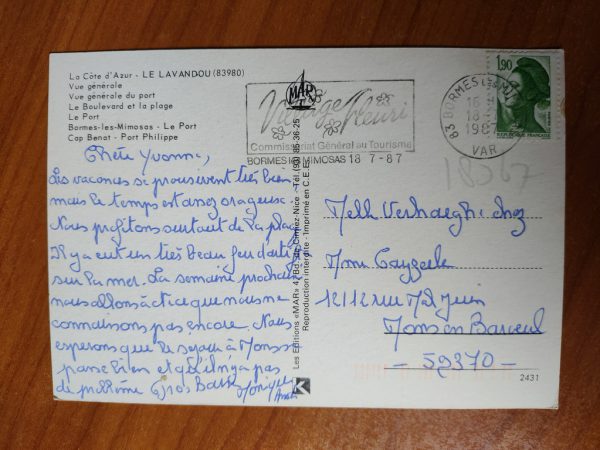 La Côte d'Azur - LE LAVANDOU (83980)
Vue générale
Vue générale du port
Le Boulevard et la plage
Le Port
Bormes-les-Mimosas - Le Port
Cap Benat - Port Philippe
Chère Yvonne,
Les vacances se poursuivent très bien
mais le temps est assez orageux.
Nous profitons surtout de la plage
Il y a eut un très beau feu d'artifice
sur la mer. La semaine prochaine
nous allons à que nous ne
connaissons pas encore. Nous
esperons que le séjour à Mons se
passe bien et qu'il n'y a pas
de problème Gros Baisers
Monique
MAR
Les Editions «MAR» 4, Bd. de Cimiez-Nice - Tél. (93) 85-36-25
Reproduction interdite - Imprimé en C.E.E.
Village Fleuri
Commissariat Général au Tourisme
BORMES LES MIMOSAS 18 7 - 87
83 BORMES LES MIMOSAS
VAR
1,90
REPUBLIQUE FRANÇAISE
18367
Melle Verhaeghe chez
Mme
12112 rue du Juin
Mons en Baroeul
- 59370 -
K
2431